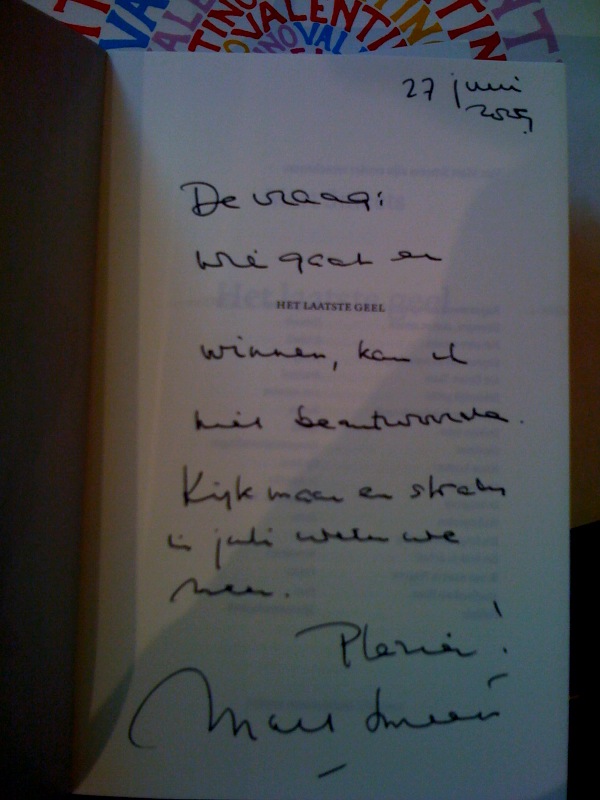 VALENTINO
27 juni
2009
De vraag:
wie gaat er
HET LAATSTE GEEL
winnen, kan ik
niet beantwoorden.
Kijk maar en straks
in juli weten we
meer.
Plezier!
Mart Smeets